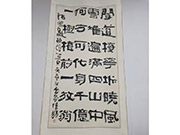 聞道梅華坼曉風
雪堆遍滿四山中
何方可化身千億
一樹梅前一放翁